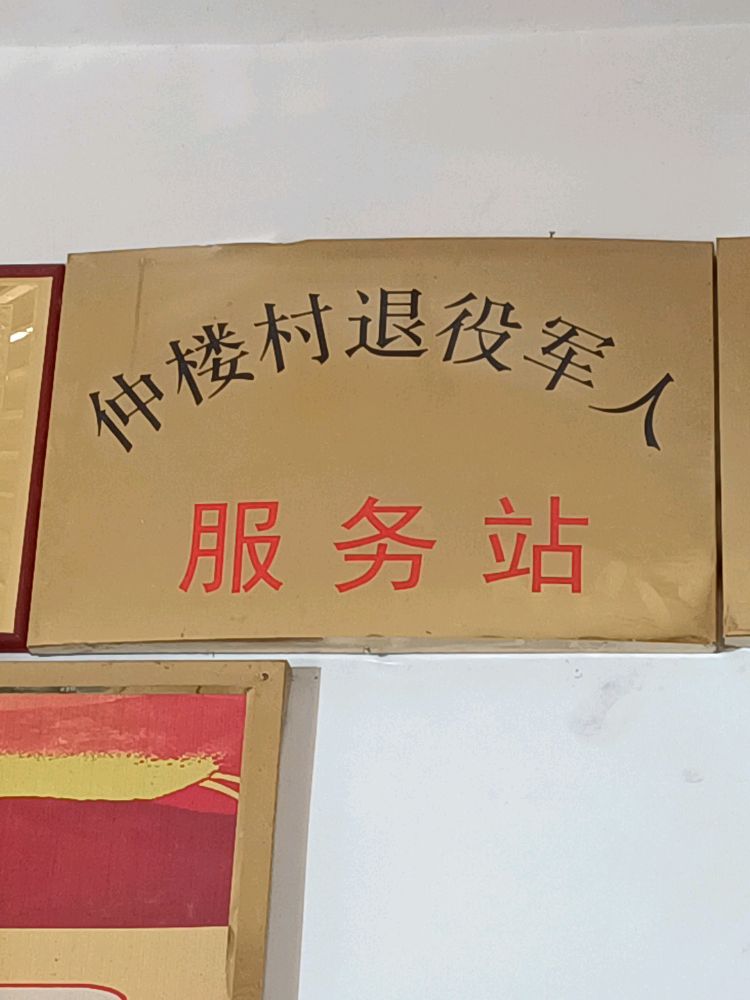 仲楼村退役军人
服务站